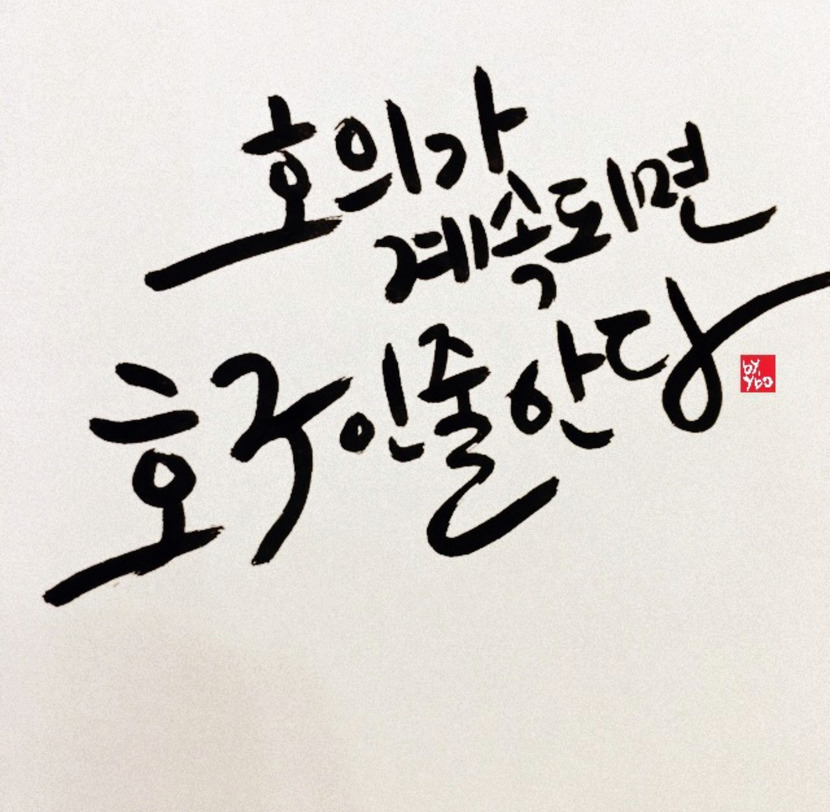 호의가
계속되면
호구인줄안당
by.
ybo